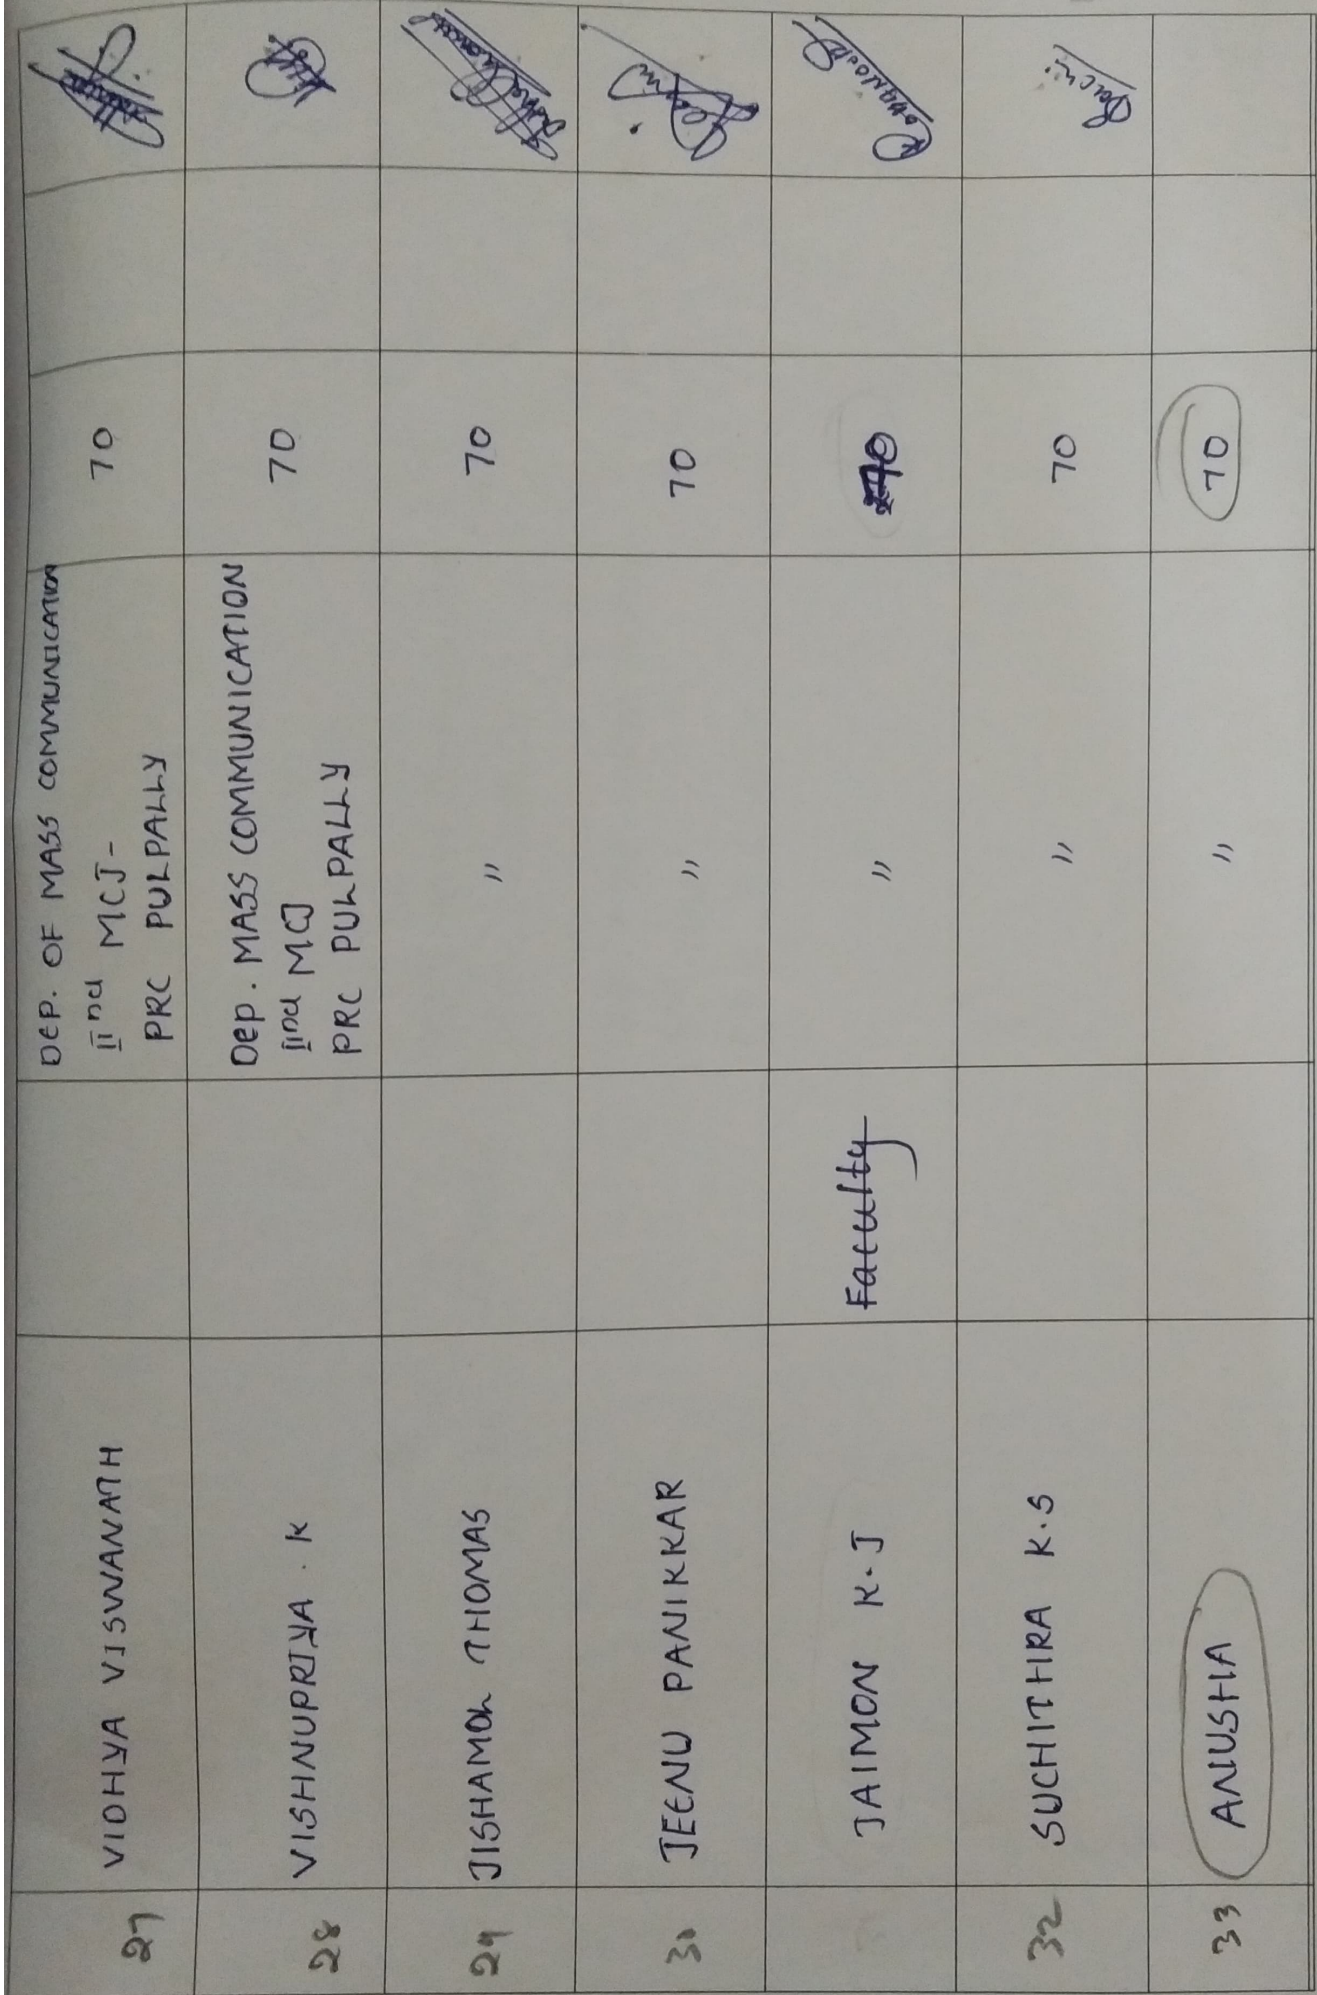 27 VIDHYA VISWANATH DEP. OF MASS COMMUNICATION 70
IInd MCJ-
PRC PULPALLY
28 VISHNUPRIYA . K Dep. MASS COMMUNICATION 70
IInd MCJ
PRC PULPALLY
29 JISHAMOL THOMAS " 70
30 JEENU PANIKKAR " 70
JAIMON K.J Faculty " 70
32 SUCHITHRA K.S " 70
33 ANUSHA " 70